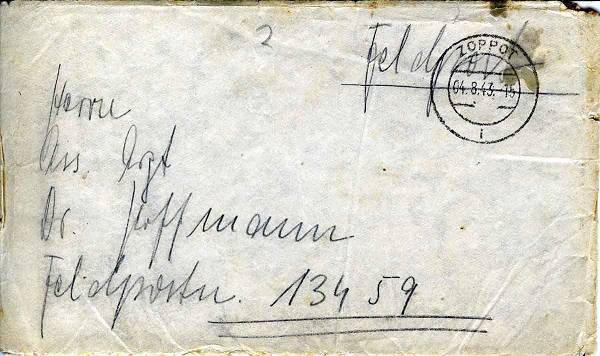 2
Feldpost
ZOPPOT
04.8.43.-15
i
Herrn
Ass. Arzt
Dr. Hoffmann
Feldpostnr. 13459